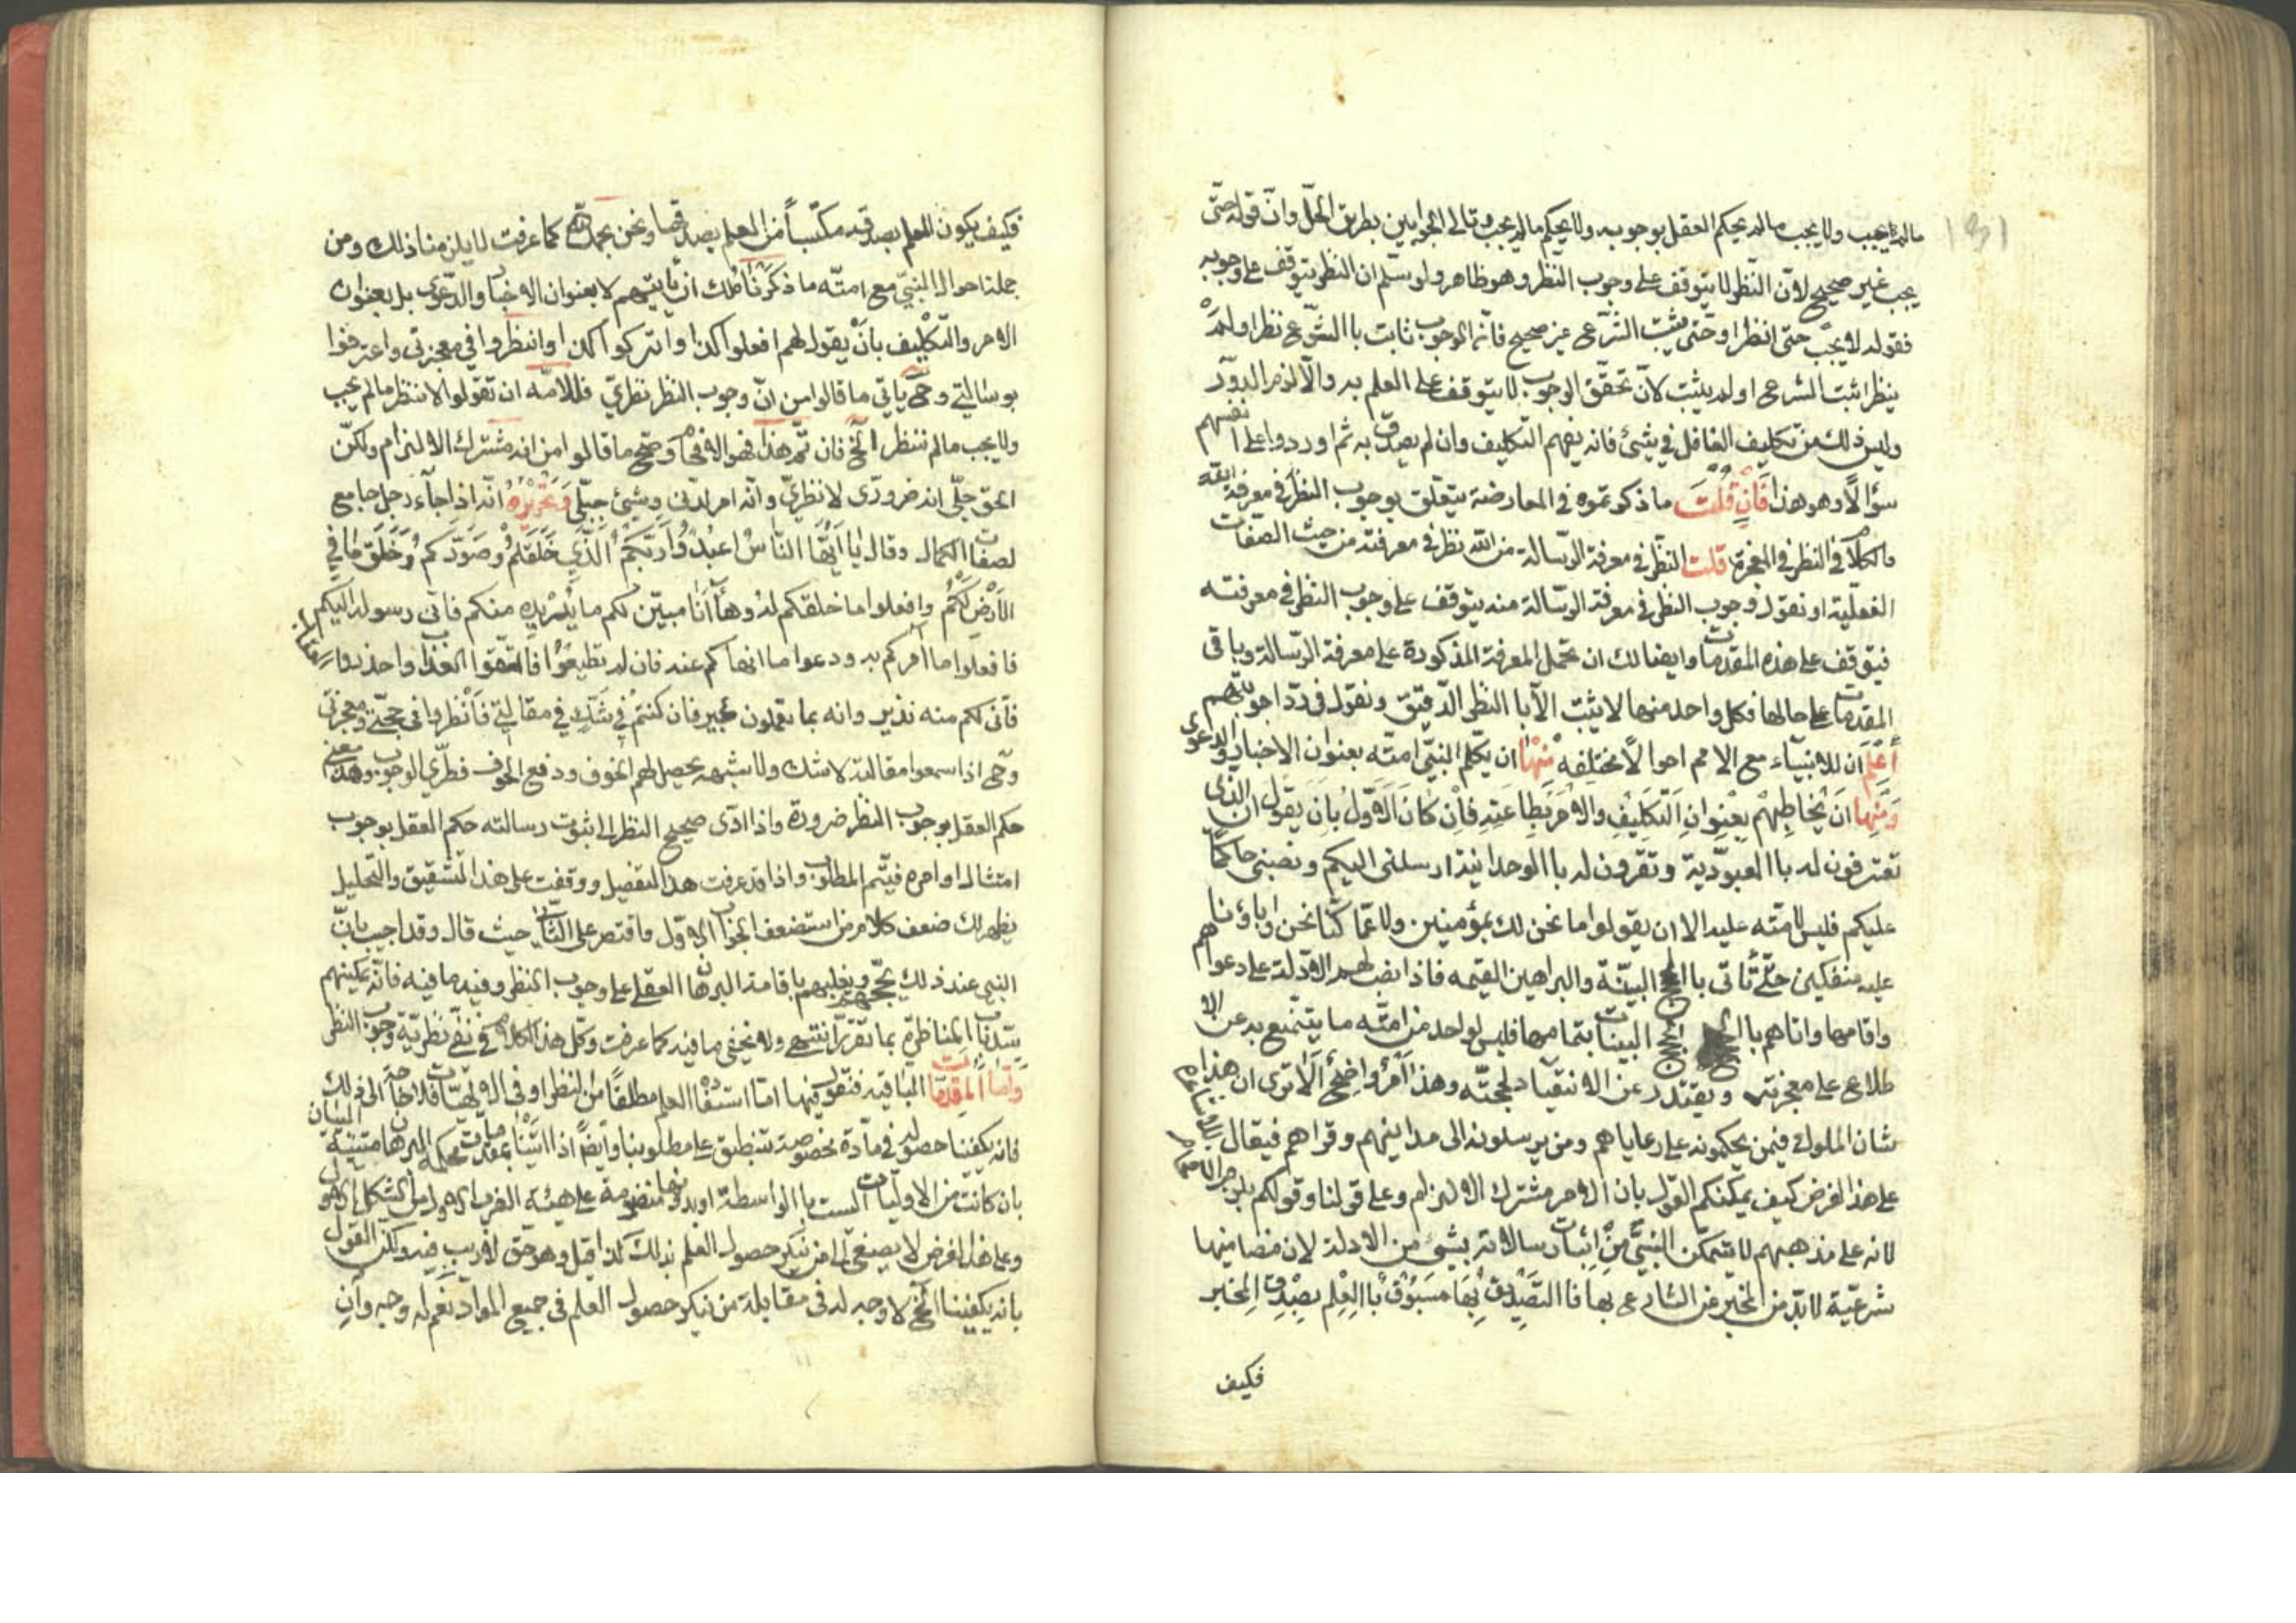 ما لم يجب ولا يجب ما لم يحكم العقل بوجوبه ولا يحكم ما لم يجب وتالى الجوابين بطريق الحلّ وانّ قوله حتّى
يجب غير صحيح لانّ النّظر لا يتوقف على وجوب النظر وهو ظاهر ولو سلّم ان النظر يتوقف على وجوبه
فقوله لا يجب حتى انظر او حتى يثبت الشّرع غير صحيح فانّه الوجوب ثابت باالشّرع نظر اولم
ينظر اثبت الشرع اولم يثبت لانّ تحقّق الوجوب لا يتوقف على العلم به والّا لزم الدور
وليس ذلك من تكليف الغافل في شيئ فانه يفهم التكليف وان لم يصدق به ثم اوردوا على انفسهم
سؤالًا وهو هذا فان قلت ما ذكرتموه في المعارضة يتعلّق بوجوب النظر في معرفة الله
والكلام في النظر في المعجزة قلت النظر في معرفة الرّسالة من الله نظر في معرفته من حيث الصفات
الفعليّة او نقول وجوب النظر في معرفة الرّسالة منه يتوقف على وجوب النظر في معرفته
فيتوقف على هذه المقدمات وايضا لك ان تحمل المعرفة المذكورة على معرفة الرّسالة وباقى
المقدمات على حالها فكل واحد منها لا يثبت الّا باالنظر الدّقيق ونقول في ردّ اجوبتهم
أعلم ان للانبيآء مع الامم احوالًا مختلفه منها ان يكلّم النبيّ امتّه بعنوان الاخبار والدعوى
ومنها ان يخاطبهم بعنوان التكليف والامر بطاعته فان كان الاوّل بان يقول ان الذى
تعترفون له باالعبوديّة وتقرون له باالوحدانيّة ارسلنى اليكم ونصبنى حاكمًا
عليكم فليس لامّته عليه الا ان يقولوا ما نحن لك بمؤمنين ولا عمّا كنّا نحن واباؤنا
عليه منفكين حتّى تأتى باالحجج البيّنة والبراهين القيمه فاذا نصب لهم الادّلة على دعواهم
واقامها واتاهم باالحجج البينات بتمامها فليس لواحد من امّته ما يتمنع به عن الا
طلاع على معجزته ويعتذر عن الانقياد لحجتّه وهذا امر واضح ألا ترى ان هذا
شان الملوك فيمن يحكمونه على رعاياهم ومن يرسلونه الى مداينهم وقراهم فيقال
على هذا الفرض كيف يمكنكم القول بان الامر مشترك الالزام وعلى قولنا وقولكم يلزم
لانه على مذهبهم لا يتمكّن النبيّ من اثبات رسالاته بشيئ من الادلة لان مضامينها
شرعيّة لا بدّ من الخبر عن الشارع بها فاالتصديق بها مسبوق باالعلم بصدق المخبر
فكيف
فكيف يكون العلم بصدقه مكتسبًا من العلم بصدقها ونحن بحمد الله كما عرفت لا يلزمنا ذلك ومن
جملة احوال النبيّ مع امتّه ما ذكرنا لك ان يأتيهم لا بعنوان الاخبار والدّعوى بل بعنوان
الامر والتكليف بأن يقول لهم افعلوا كذا واتركوا كذا وانظروا في معجزتي واعترفوا
برسالتي وحى يأتي ما قالوا من انّ وجوب النظر نظريّ فللامّه ان تقولوا لا ننظر ما لم يجب
ولا يجب ما لم ننظر الخ فان تمّ هذا فهو الافحام وصحّ ما قالوا من انه مشترك الالزام ولكنّ
الحق جليّ انه ضرورى لا نظريّ وانّه امر لدنّى وشيئ جبلّى وتحريره انّه اذا جآء رجل جامع
لصفات الكمال وقال يا ايّها النّاس اعبدوا ربّكم الّذي خلقكم وصوّركم وخلق ما في
الأرض لكم وافعلوا ما خلقكم له وها أنا مبيّن لكم ما يريده منكم فانى رسوله اليكم
فافعلوا ما آمركم به ودعوا ما انهاكم عنه فان لم تطيعوا فالتحقوا العذاب واحذروا
فانى لكم منه نذير وانه بما تعملون خبير فان كنتم في شكّ في مقالتي فأنظروا في حجّتي ومعجزتى
وحى اذا سمعوا مقالته لا شك ولا شبهه يحصل لهم الخوف ودفع الخوف فطريّ الوجوب وهذا معنى
حكم العقل بوجوب النظر ضرورة واذا ادّى صحيح النظر الى ثبوت رسالته حكم العقل بوجوب
امتثال اوامره فيتّم المطلوب واذا قد عرفت هذا التفصيل ووقفت على هذا التشقيق والتحليل
يظهر لك ضعف كلام من استضعف الجواب الاوّل واقتصر على الثّاني حيث قال وقد اجيب بانّ
النبى عند ذلك يحجّهم ويغلبهم باقامة البرهان العقلى على وجوب النظر وفيه ما فيه فانّه يمكنهم
سدّ باب المناظرة بما تقرّر انتهى ولا يخفى ما فيه كما عرفت وكلّ هذا الكلام في نفي نظريّة وجوب النظر
وأمّا المقدمات الباقية فنقول فيها امّا استفادة العلم مطلقًا من النظر او في الالهيّات فلا حاجة الى ذلك البيان
فانه يكفينا حصوله في مادّة مخصوصة تنطبق على مطلوبنا وأيضًا اذا اتيّنا بمقدمات محكمه البرهان متينة
بان كانت من الاوليات ليست باالواسطة او بدونها منضومة على هيئة الضرب الاول من الشكل الاول
وعلى هذا الفرض لا يصغى الى من ينكر حصول العلم بذلك كذا قيل وهو حق لا ريب فيه ولكنّ القول
بانه يكفينا الخ لا وجه له في مقابلة من ينكر حصول العلم في جميع الموادّ نعم له وجه وأن